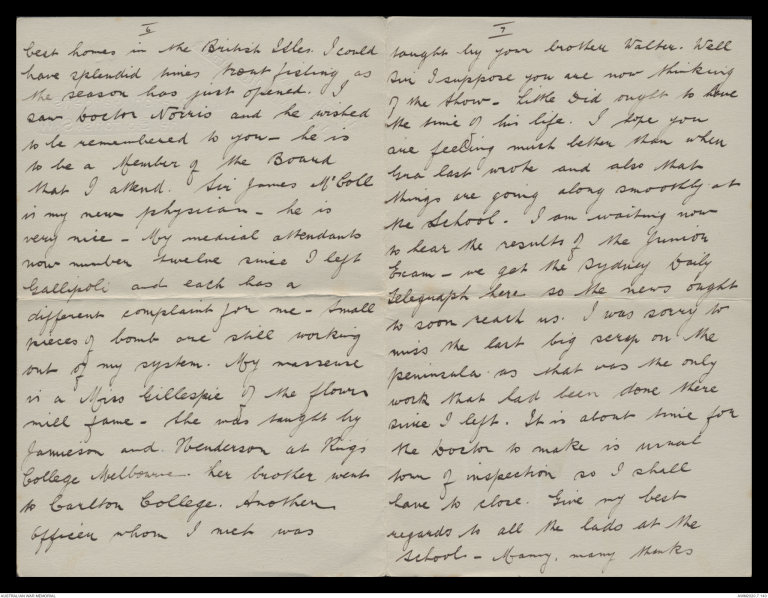 6
best homes in the British Isles. I could
have splendid times trout fishing as
the season has just opened. I
saw Doctor Norris and he wished
to be remembered to you - he is
to be a Member of the Board
that I attend. Sir James McColl
is my new physician - he is
very nice - My medical attendants
now number twelve since I left
Gallipoli and each has a
different complaint for me - Small
pieces of bomb are still working
out of my system. My masseuse
is a Miss Gillespie of the flour
mill fame - She was taught by
Jamieson and Henderson at King's
College Melbourne her brother went
to Carlton College. Another
Officer whom I met was
7
taught by your brother Walter. Well
Sir I suppose you are now thinking
of the Show - Little Did ought to have
the time of his life. I hope you
are feeling much better than when
Gra last wrote and also that
things are going along smoothly at
the School. I am waiting now
to hear the results of the Junior
Exam - we get the Sydney Daily
Telegraph here so the news ought
to soon reach us. I was sorry to
miss the last big scrap on the
peninsula as that was the only
work that had been done there
since I left. It is about time for
the Doctor to make is usual
tour of inspection so I shall
have to close. Give my best
regards to all the lads at the
School - Many, many thanks
AUSTRALIAN WAR MEMORIAL